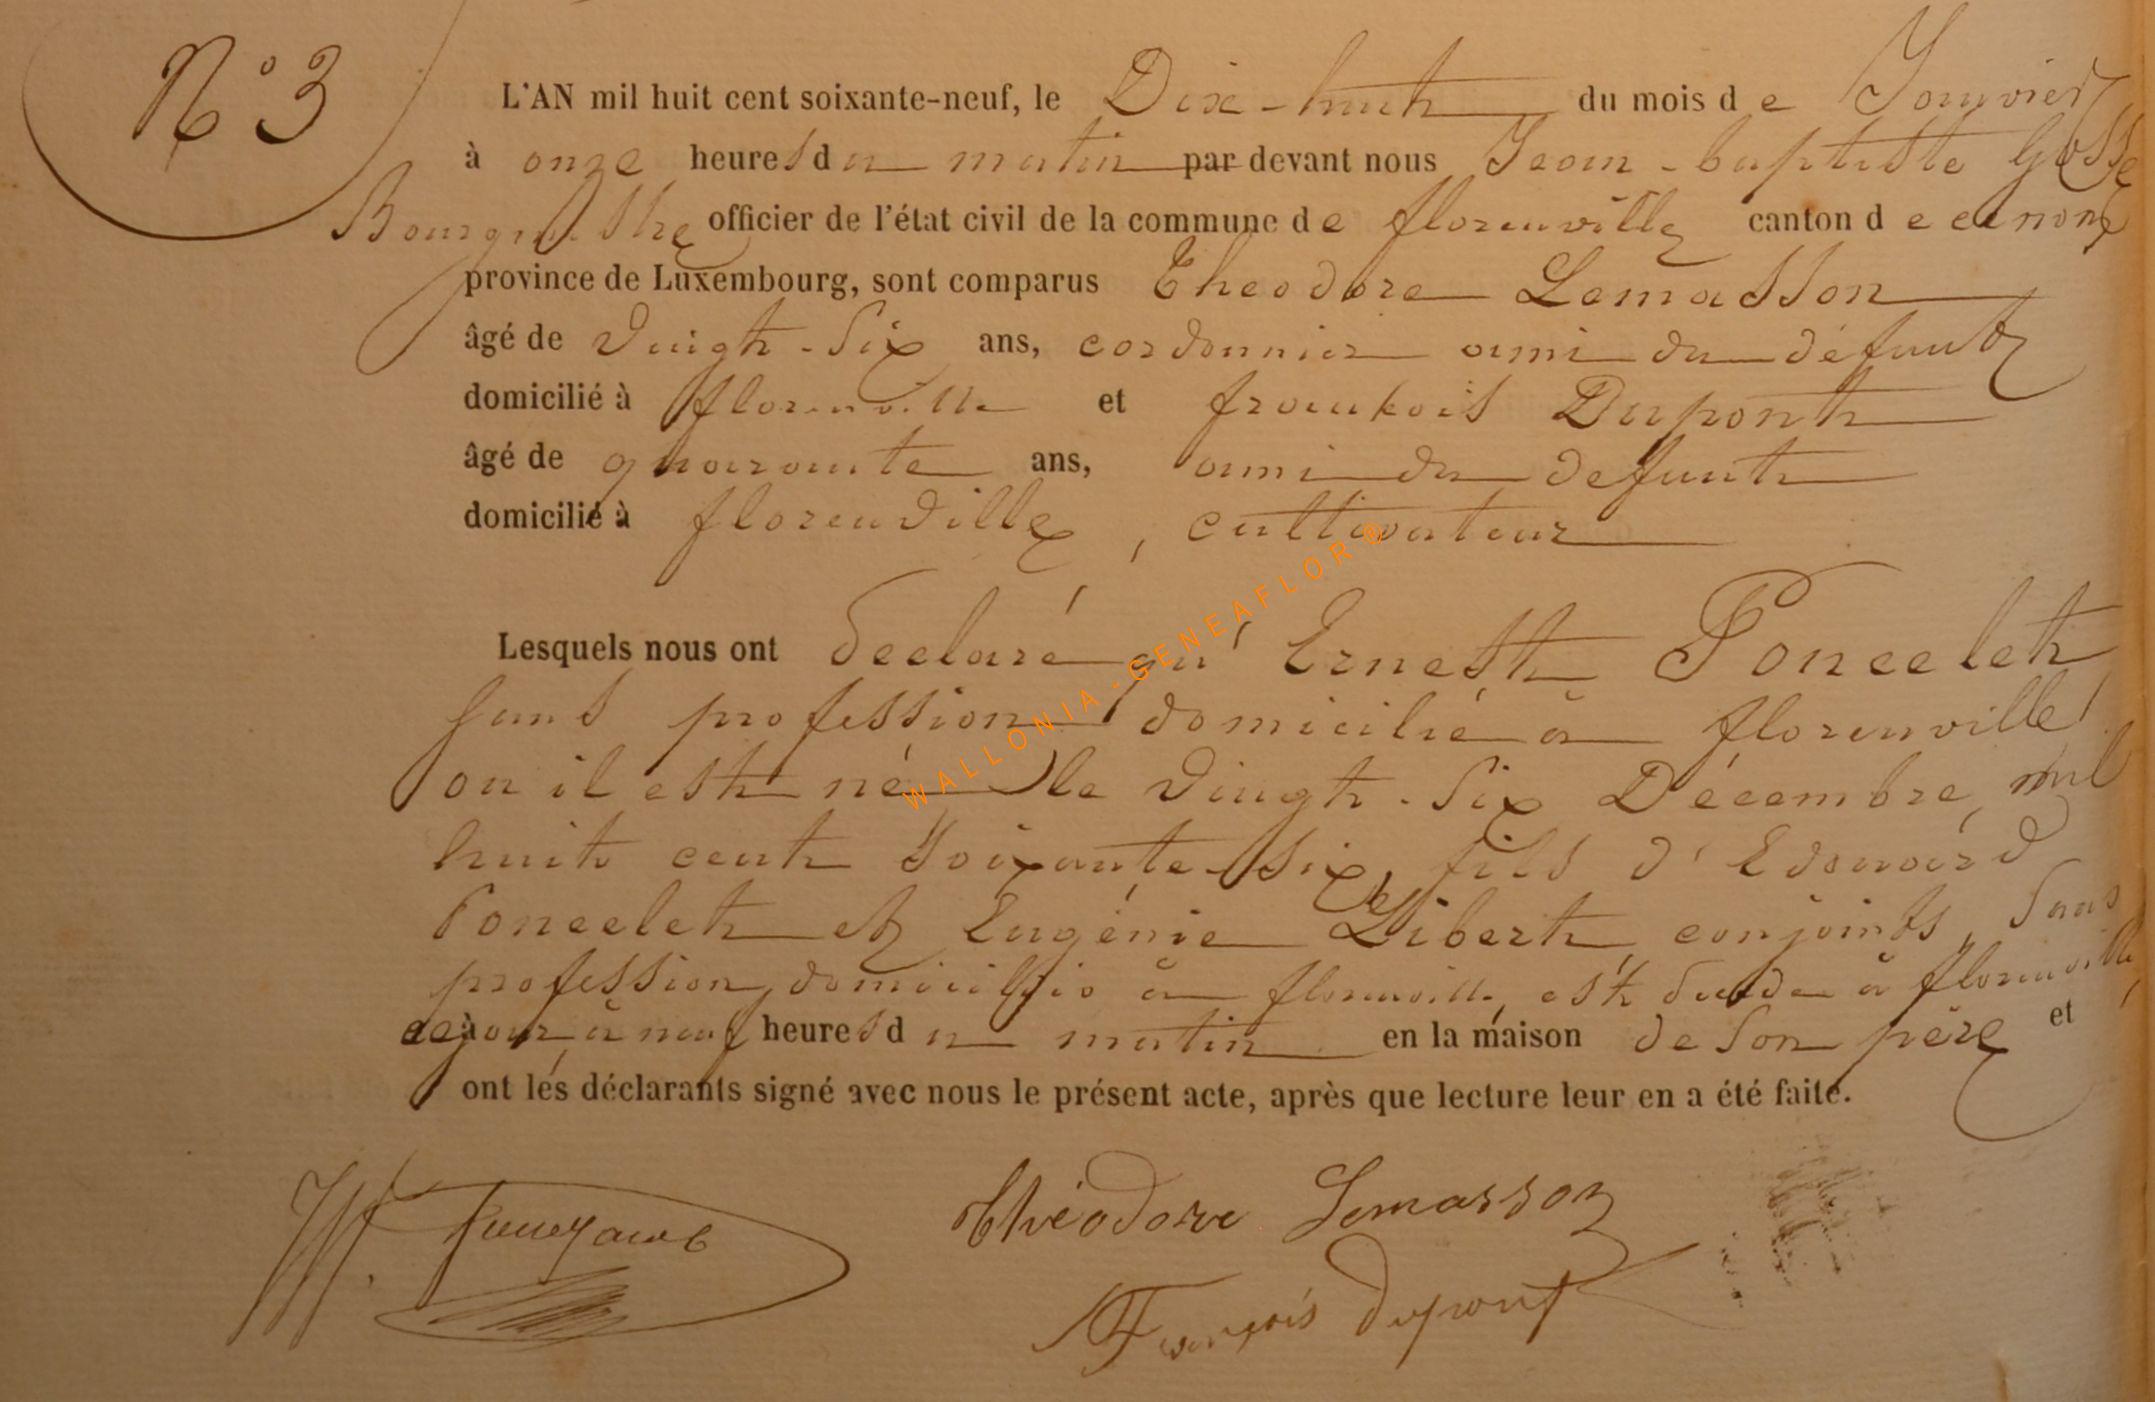 N° 3
L'AN mil huit cent soixante-neuf, le Dix-huit du mois de Janvier
à onze heures du matin par devant nous Jean-baptiste Gosse
Bourgmestre officier de l'état civil de la commune de florenville canton de
province de Luxembourg, sont comparus Theodore Lemasson
âgé de vingt-six ans, cordonnier ami du défunt
domicilié à florenville et francois Dupont
âgé de quarante ans, ami du defunt
domicilié à florenville, cultivateur
Lesquels nous ont declaré qu'Ernest Poncelet
sans profession domicilié à florenville
ou il est né le vingt-six Décembre mil
huit cent soixante-six, fils d'Edouard
Poncelet et Eugénie Libert conjoints, sans
profession, domiciliés à florenville, est à florenville
ce jour à neuf heures du matin en la maison de son père et
ont les déclarants signé avec nous le présent acte, après que lecture leur en a été faite.
Théodore Lemasson
François dupont
WALLONIA-GENEAFLOR®